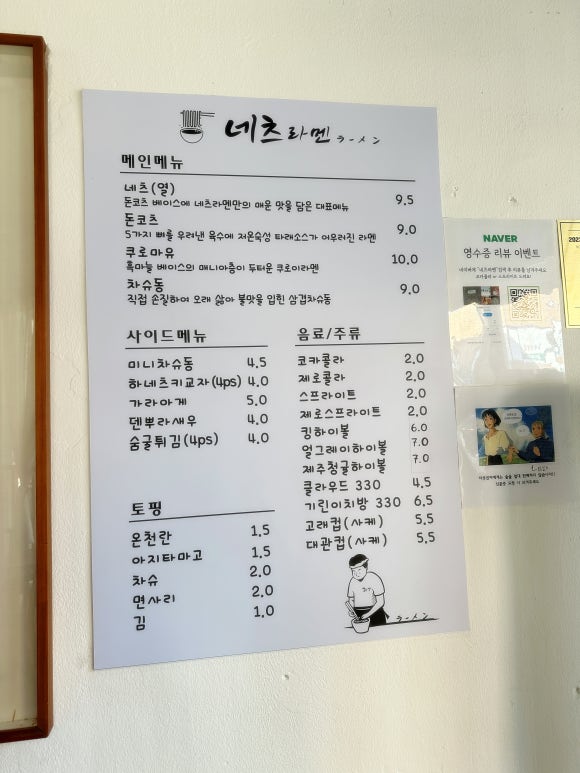 네츠라멘 ラーメン
메인메뉴
네츠(열) 9.5
돈코츠 베이스에 네츠라멘만의 매운 맛을 담은 대표메뉴
돈코츠 9.0
5가지 뼈를 우려낸 육수에 저온숙성 타래소스가 어우러진 라멘
쿠로마유 10.0
흑마늘 베이스의 매니아층이 두터운 쿠로이라멘
차슈동 9.0
직접 손질하여 오래 삶아 불맛을 입힌 삼겹차슈동
사이드메뉴
미니차슈동 4.5
하네츠키교자(4ps) 4.0
가라아게 5.0
덴뿌라새우 4.0
숨굴튀김(4ps) 4.0
토핑
온천란 1.5
아지타마고 1.5
차슈 2.0
면사리 2.0
김 1.0
음료/주류
코카콜라 2.0
제로콜라 2.0
스프라이트 2.0
제로스프라이트 2.0
킹하이볼 6.0
얼그레이하이볼 7.0
제주청귤하이볼 7.0
클라우드 330 4.5
기린이치방 330 6.5
고래컵(사케) 5.5
대관컵(사케) 5.5
ラーメン
NAVER
영수증 리뷰 이벤트